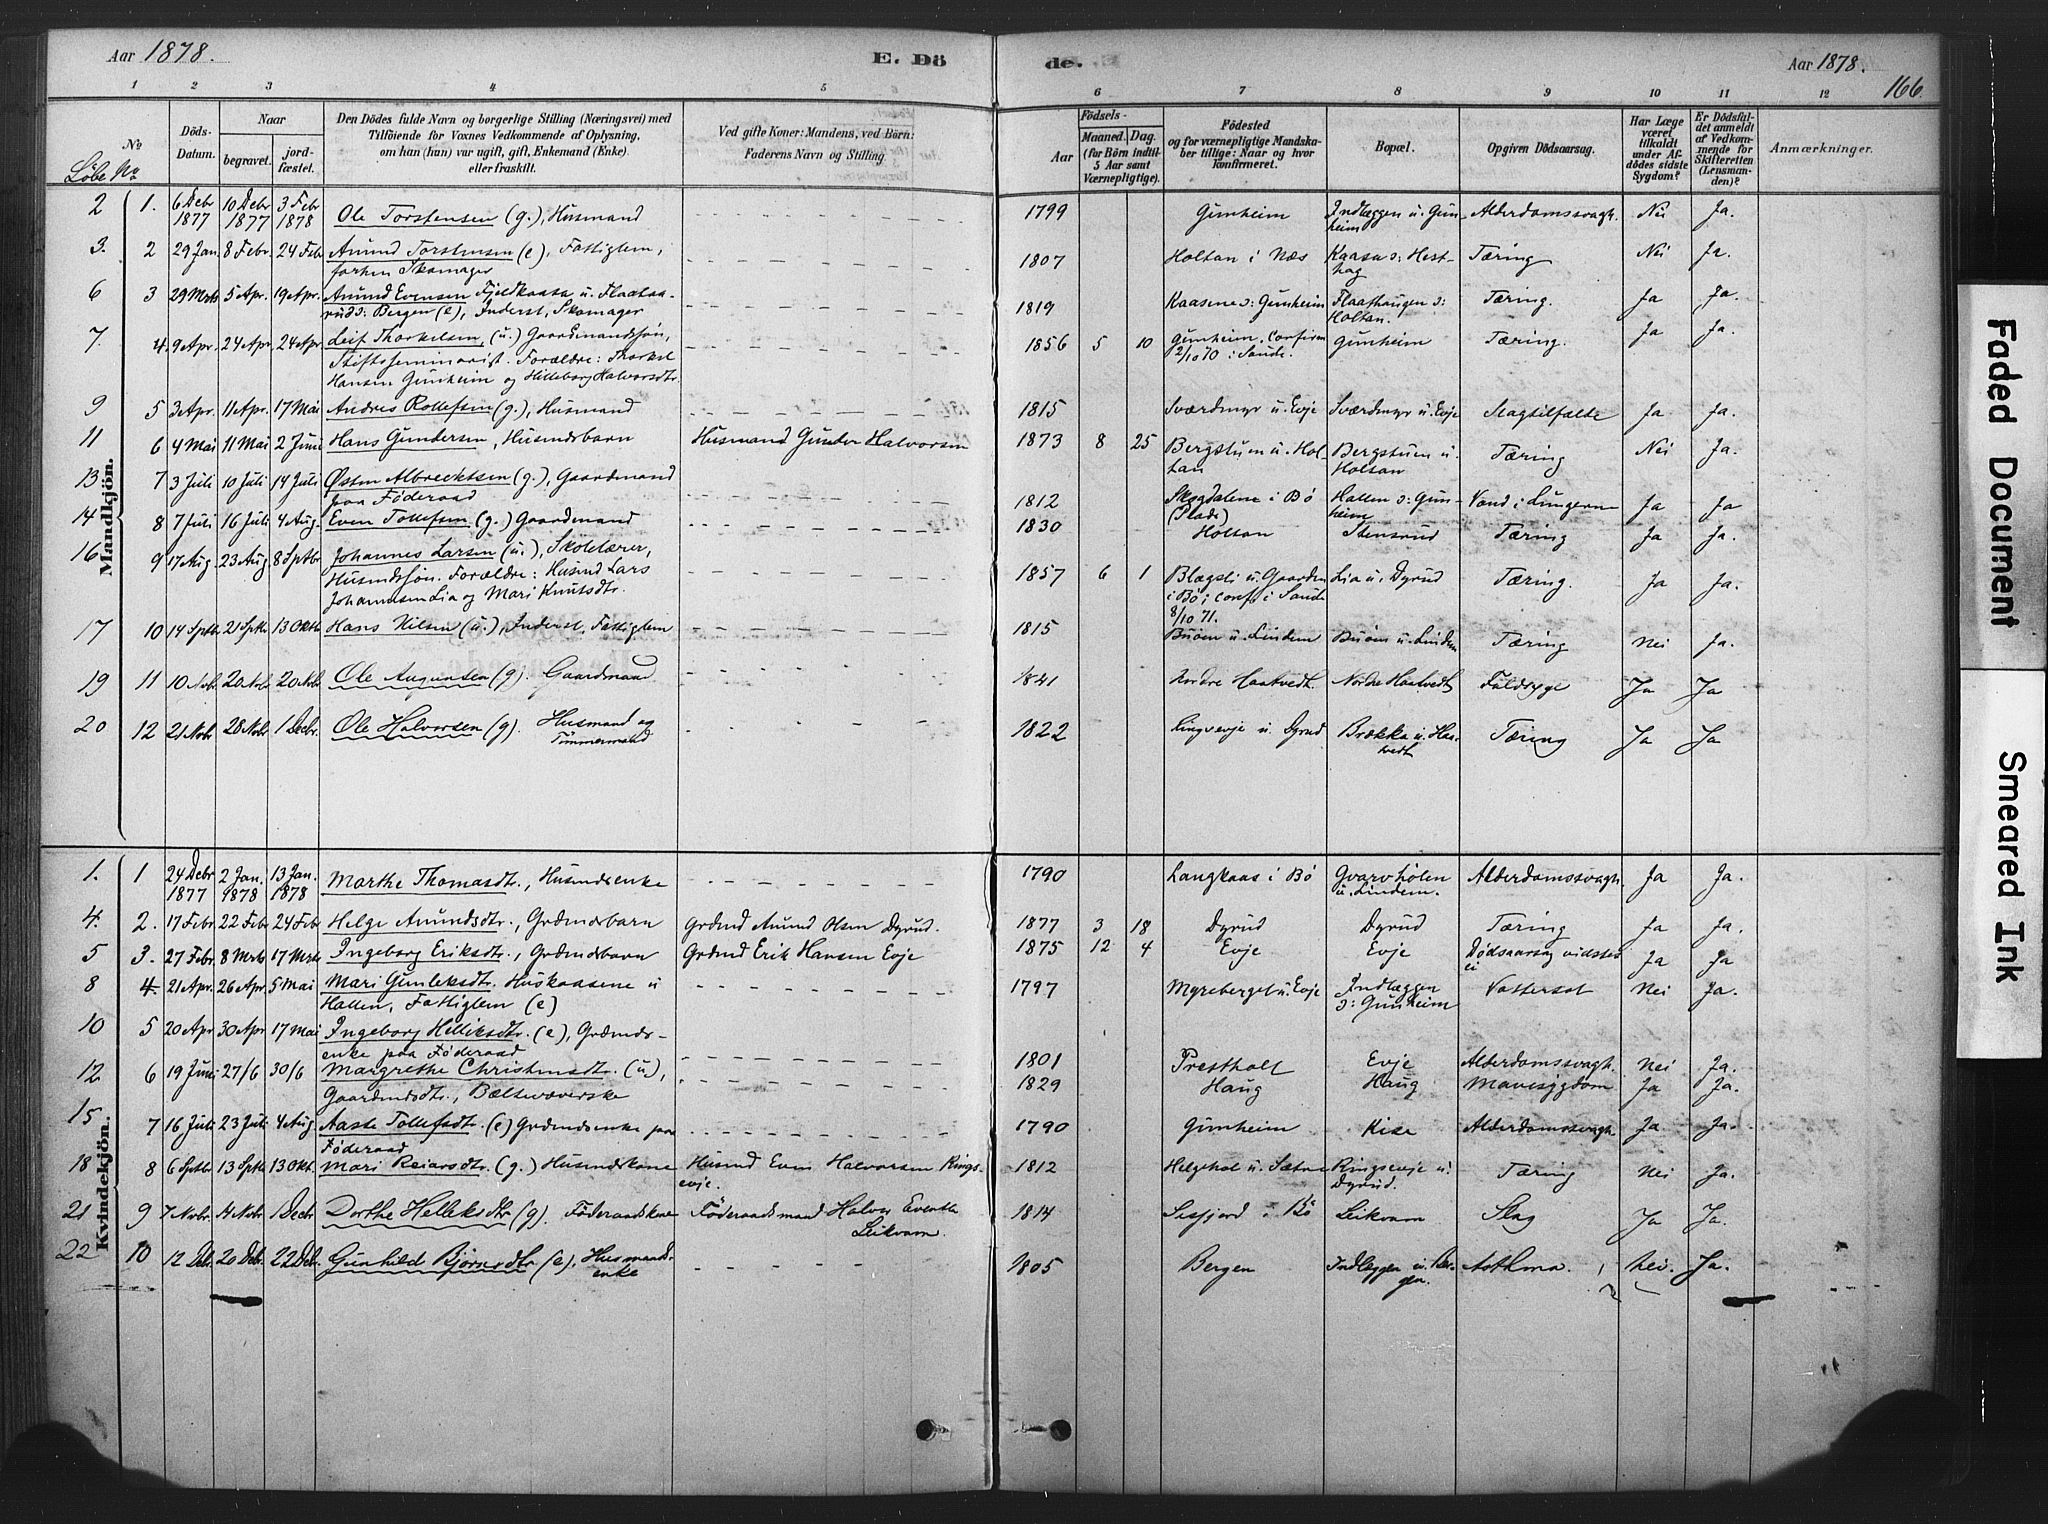 Aar 1878.
E. Dö
de.
Aar 1878.
166.
1 2 3 4 5 6 7 8 9 10 11 12
Löbe No
No
Döds-Datum.
Naar
begravet.
jord-fæstet.
Den Dödes fulde Navn og borgerlige Stilling (Næringsvei) med
Tilföiende for Voxnes Vedkommende af Oplysning,
om han (hun) var ugift, gift, Enkemand (Enke).
eller fraskilt.
Ved gifte Koner: Mandens, ved Börn:
Faderens Navn og Stilling.
Födsels-
Aar
Maaned. Dag.
(for Börn indtil
5 Aar samt
Værnepligtige).
Födested
og for værnepligtige Mandska-
ber tillige: Naar og hvor
konfirmeret.
Bopæl.
Opgiven Dödsaarsag.
Har Læge
været
tilkaldt
under Af-
dödes sidste
Sygdom?
Er Dödsfal-
det anmeldt
af Vedkom-
mende for
Skifteretten
(Lensman-
den)?
Anmærkninger.
Mandkjön.
2 1. 6 Debr 1877 10 Debr 1877 3 Febr 1878 Ole Torstensen (g.), Husmand 1799 Gunheim Indlæggen u. Gunheim Alderdomssvagh. Nei Ja.
3. 2 29 Jan. 8 Febr. 24 Febr Amund Torstensen (e), Fattiglem,
forhen Skomager 1807 Holtan i Næs Kaasa s: Hesthag Tæring Nei Ja.
6 3 29 Mrts 5 Apr. 19 Apr. Amund Evensen Fjeldkaasa u. Flaataa-
rud s: Bergen (e), Inderst, Skomager 1819 Kaasene s: Gunheim Flaathaugen s: Holtan. Tæring. Ja Ja.
7. 4 9 Apr. 24 Apr. 24 Apr Leif Thorkelsen, (u.) Gaardmandssøn,
Stiftsseminarist. Forældre: Thorkel
Hansen Gunheim og Hilleborg Halvorsdtr. 1856 5 10 Gunheim, Confirm 2/10 70 i Sande. Gunheim Tæring. Ja Ja.
9 5 3 Apr. 11 Apr. 17 Mai Andres Rollefsen (g.), Husmand 1815 Sværdmyr u. Evje Sværdmyr u. Evje Slagtilfælde Ja Ja.
11 6 4 Mai 11 Mai 2 Juni Hans Gundersen, Husmdsbarn Husmand Gunder Halvorsen 1873 8 25 Bergstuen u. Holtan Bergstuen u. Holtan Tæring Nei Ja.
13 7 3 Juli 10 Juli 14 Juli Østen Albrecktsen (g.), Gaardmand
paa Föderaad 1812 Skogdalene i Bö (Plads) Hallen s: Gunheim Vand i Lungerne Ja Ja
14 8 7 Juli 16 Juli 4 Aug. Even Tollefsen (g.) Gaardmand 1830 Holtan Stensrud Tæring Ja Ja.
16 9 17 Aug. 23 Aug 8 Sptbr Johannes Larsen (u.), Skolelærer,
Husmdssøn. Forældre: Husmd Lars
Johannesen Lia og Mari Knutsdtr. 1857 6 1 Blægsli u. Gaarden i Bö; conf. i Sande 8/10 71. Lia u. Dyrud Tæring. Ja Ja.
17 10 14 Sptb 21 Sptb 13 Oktb Hans Nilsen (u.), Inderst, Fattiglem 1815 Buöen u. Lindem Buöen u. Lindem Tæring Nei Ja.
19 11 10 Nvbr. 20 Nvbr 20 Nvbr Ole Augunsen (g). Gaardmand 1841 Nordre Haatvedt. Nordre Haatvedt Faldsyge Ja Ja
20 12 21 Nvbr 28 Nvbr 1 Decbr. Ole Halvorsen (g). Husmand og
Tømmermand 1822 Ringsevje u. Dyrud Brækka u. Haatvedt Tæring Ja Ja
Kvindekjön.
1. 1 24 Debr 1877 2 Jan. 1878 13 Jan. 1878 Marthe Thomasdtr., Husmdsenke 1790 Langkaas i Bö Gvarvholen u. Lindem. Alderdomssvagh. Ja Ja.
4. 2. 17 Febr 22 Febr 24 Febr Helge Amundsdtr., Grdmdsbarn Grdmd Amund Olsen Dyrud. 1877 3 18 Dyrud Dyrud Tæring Ja Ja.
5 3. 27 Febr. 8 Mrts 17 Mrts Ingeborg Eriksdtr., Grdmdsbarn Grdmd Erik Hansen Evje 1875 12 4 Evje Evje Dödsaarsag vidstes ei Ja Ja
8 4. 21 Apr. 26 Apr 5 Mai Mari Gunleksdtr. Huskaasene u
Hallen, Fattiglem (e) 1797 Myreberget u. Evje Indlæggen s: Gunheim Vattersot Nei Ja.
10 5 20 Apr 30 Apr 17 Mai Ingeborg Helliksdtr. (e), Grdmds-
enke paa Föderaad 1801 Prestholt Evje Alderdomssvagh. Nei Ja.
12 6 19 Juni 27/6 30/6 Margrethe Christensdtr. (u),
Gaardmdsdtr., Bæltevæverske 1829 Haug Haug Mavesygdom Ja Ja.
15 7 16 Juli 23 Juli 4 Aug Aaste Tollefsdtr. (e) Grdmdsenke paa
Föderaad 1790 Gunheim Kise Alderdomssvagh Ja Ja.
18 8 6 Sptbr 13 Sptb 13 Okt. Mari Reiarsdtr. (g.) Husmdskone Husmd Even Halvorsen Rings-
evje. 1812 Helgehol u. Sætre Ringsevje u. Dyrud. Tæring Nei Ja.
21 9 7 Nvbr. 14 Nvbr 1 Decbr Dorthe Helleksdtr (g). Föderaadskone Föderaadsmand Halvor Eventh
Leikvam. 1814 Sisjord i Bö Leikvam Slag Ja Ja.
22 10 12 Debr. 20 Debr. 22 Deb. Gunhild Bjørnsdtr (e), Husmands-
enke 1805 Bergen Indleggen u. Bergen. Asthma. Nei. Ja.
Faded Document
Smeared Ink